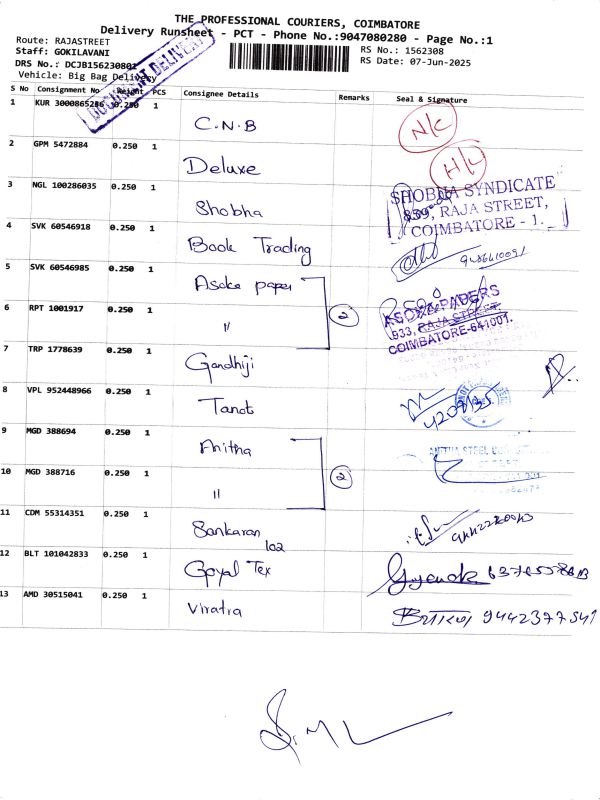 THE PROFESSIONAL COURIERS, COIMBATORE
Delivery Runsheet - PCT - Phone No.:9047080280 - Page No.:1
Route: RAJASTREET
Staff: GOKILAVANI
DRS No.: DCJB156230801
Vehicle: Big Bag Delivery
RS No.: 1562308
RS Date: 07-Jun-2025
DOCUMENT DELIVERY
S No Consignment No Weight PCS Consignee Details Remarks Seal & Signature
1 KUR 3000865286 0.250 1 C.N.B N/C
2 GPM 5472884 0.250 1 Deluxe H/L
3 NGL 100286035 0.250 1 Shobha
SHOBHA SYNDICATE
839, RAJA STREET,
COIMBATORE - 1.
4 SVK 60546918 0.250 1 Book Trading
5 SVK 60546985 0.250 1 Asoka paper
6 RPT 1001917 0.250 1 " 2
ASOKA PAPERS
933, RAJA STREET,
COIMBATORE-641001.
7 TRP 1778639 0.250 1 Gandhiji
8 VPL 952448966 0.250 1 Tanot
9 MGD 388694 0.250 1 Anitha
ANITHA STEEL
10 MGD 388716 0.250 1 " 2
11 CDM 55314351 0.250 1 Sankaran
102
12 BLT 101042833 0.250 1 Goyal Tex
13 AMD 30515041 0.250 1 Viratra 9442377541